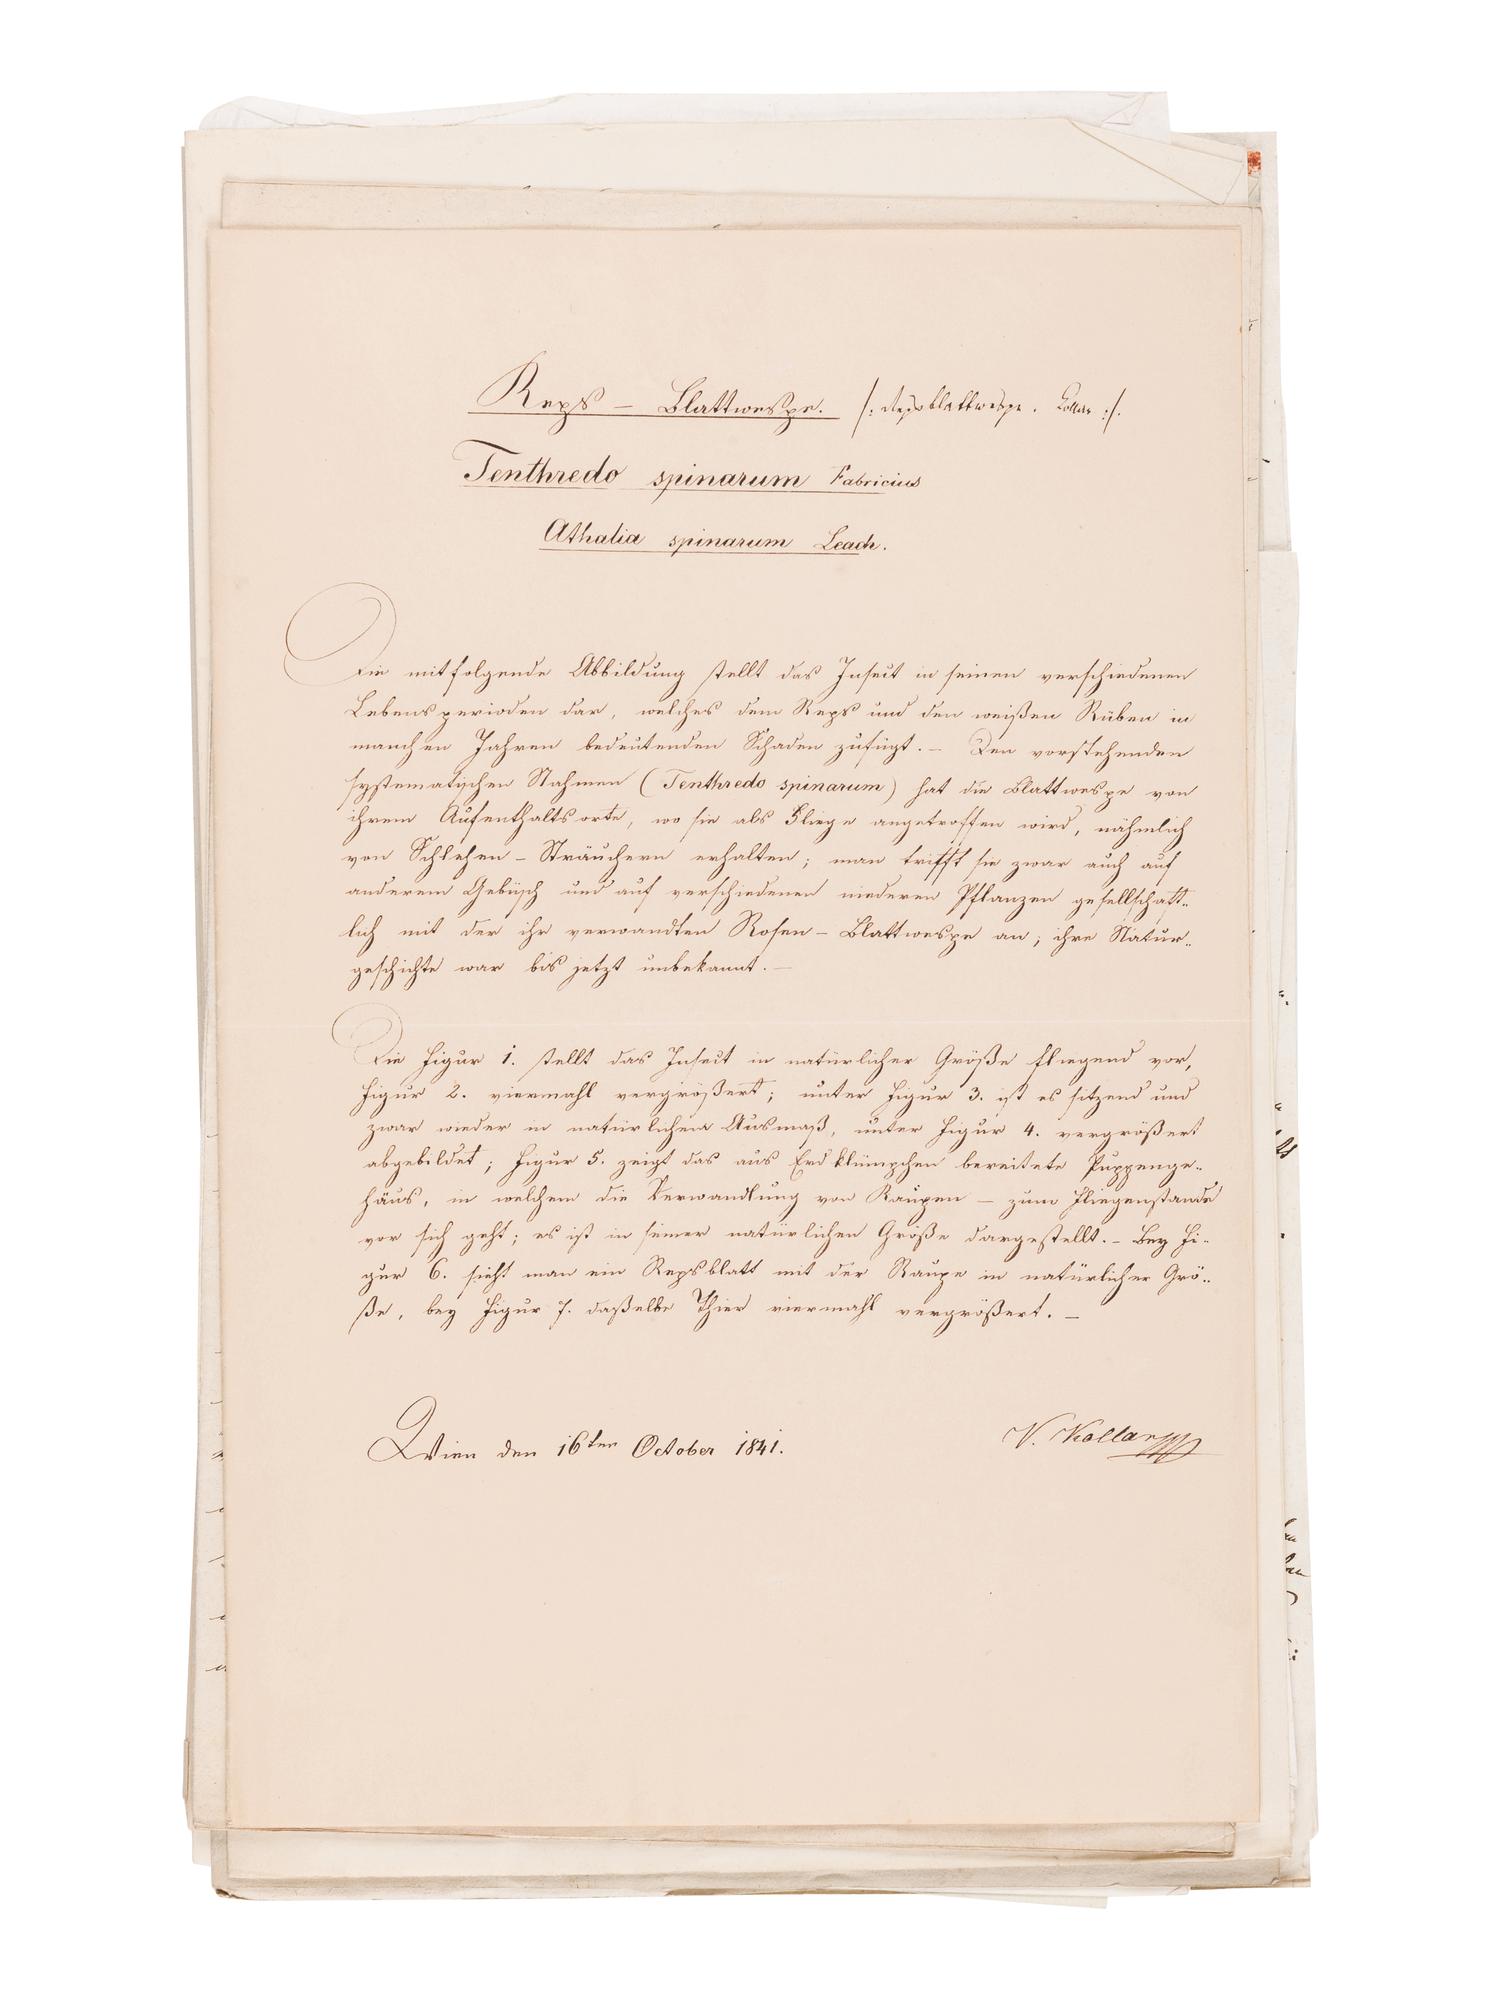 Reps – Blattwespe. /: Repsblattwespe. Kollar :/.
Tenthredo spinarum Fabricius
Athalia spinarum Leach.
Die mitfolgende Abbildung stellt das Insect in seinen verschiedenen
Lebensperioden dar, welches dem Reps und den weißen Rüben in
manchen Jahren bedeutenden Schaden zufügt. – Den vorstehenden
systematischen Nahmen (Tenthredo spinarum) hat die Blattwespe von
ihrem Aufenthaltsorte, wo sie als Fliege angetroffen wird, nähmlich
von Schlehen – Sträuchern erhalten; man trifft sie zwar auch auf
anderem Gebüsch und auf verschiedenen niederen Pflanzen gesellschaft-
lich mit der ihr verwandten Rosen – Blattwespe an; ihre Natur-
geschichte war bis jetzt unbekannt. –
Die Figur 1. stellt das Insect in natürlicher Größe fliegend vor,
Figur 2. viermahl vergrößert; unter Figur 3. ist es sitzend und
zwar wieder in natürlichem Ausmaß, unter Figur 4. vergrößert
abgebildet; Figur 5. zeigt das aus Erdklümpchen bereitete Puppenge-
häus, in welchem die Verwandlung von Raupen – zum Fliegenstande
vor sich geht; es ist in seiner natürlichen Größe dargestellt. – Bey Fi-
gur 6. sieht man ein Repsblatt mit der Raupe in natürlicher Grö-
ße, bey Figur 7. daßelbe Thier viermahl vergrößert. –
Wien den 16ten October 1841.
V. Kollar